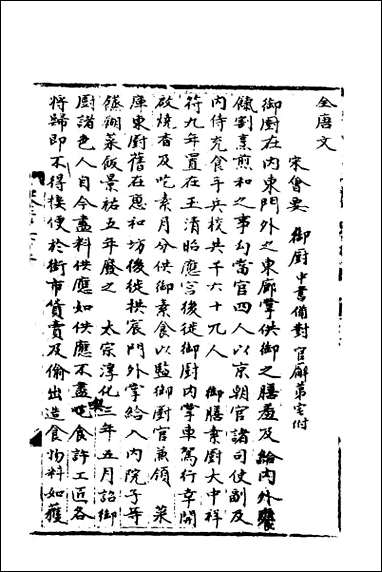 全唐文
宋會要 御厨 中書備對 官廨第宅附
御厨在內東門外之東廊掌供御之膳羞及給內外饔
餼割烹煎和之事勾當官四人以京朝官諸司使副及
內侍充食手兵校共千六十九人 御膳素厨大中祥
符九年置在玉清昭應宮後徙御厨內掌車駕行幸開
啟燒香及吃素月分供御素食以監御厨官兼領 菜
庫東厨舊在應和坊後徙拱宸門外掌給入內院子等
糍餬菜飯景祐五年廢之 太宗淳化二年五月詔御
厨諸色人自今盡料供應如供應不盡食許工匠各
將歸即不得挾便於街市貨賣及偷出造食物料如獲